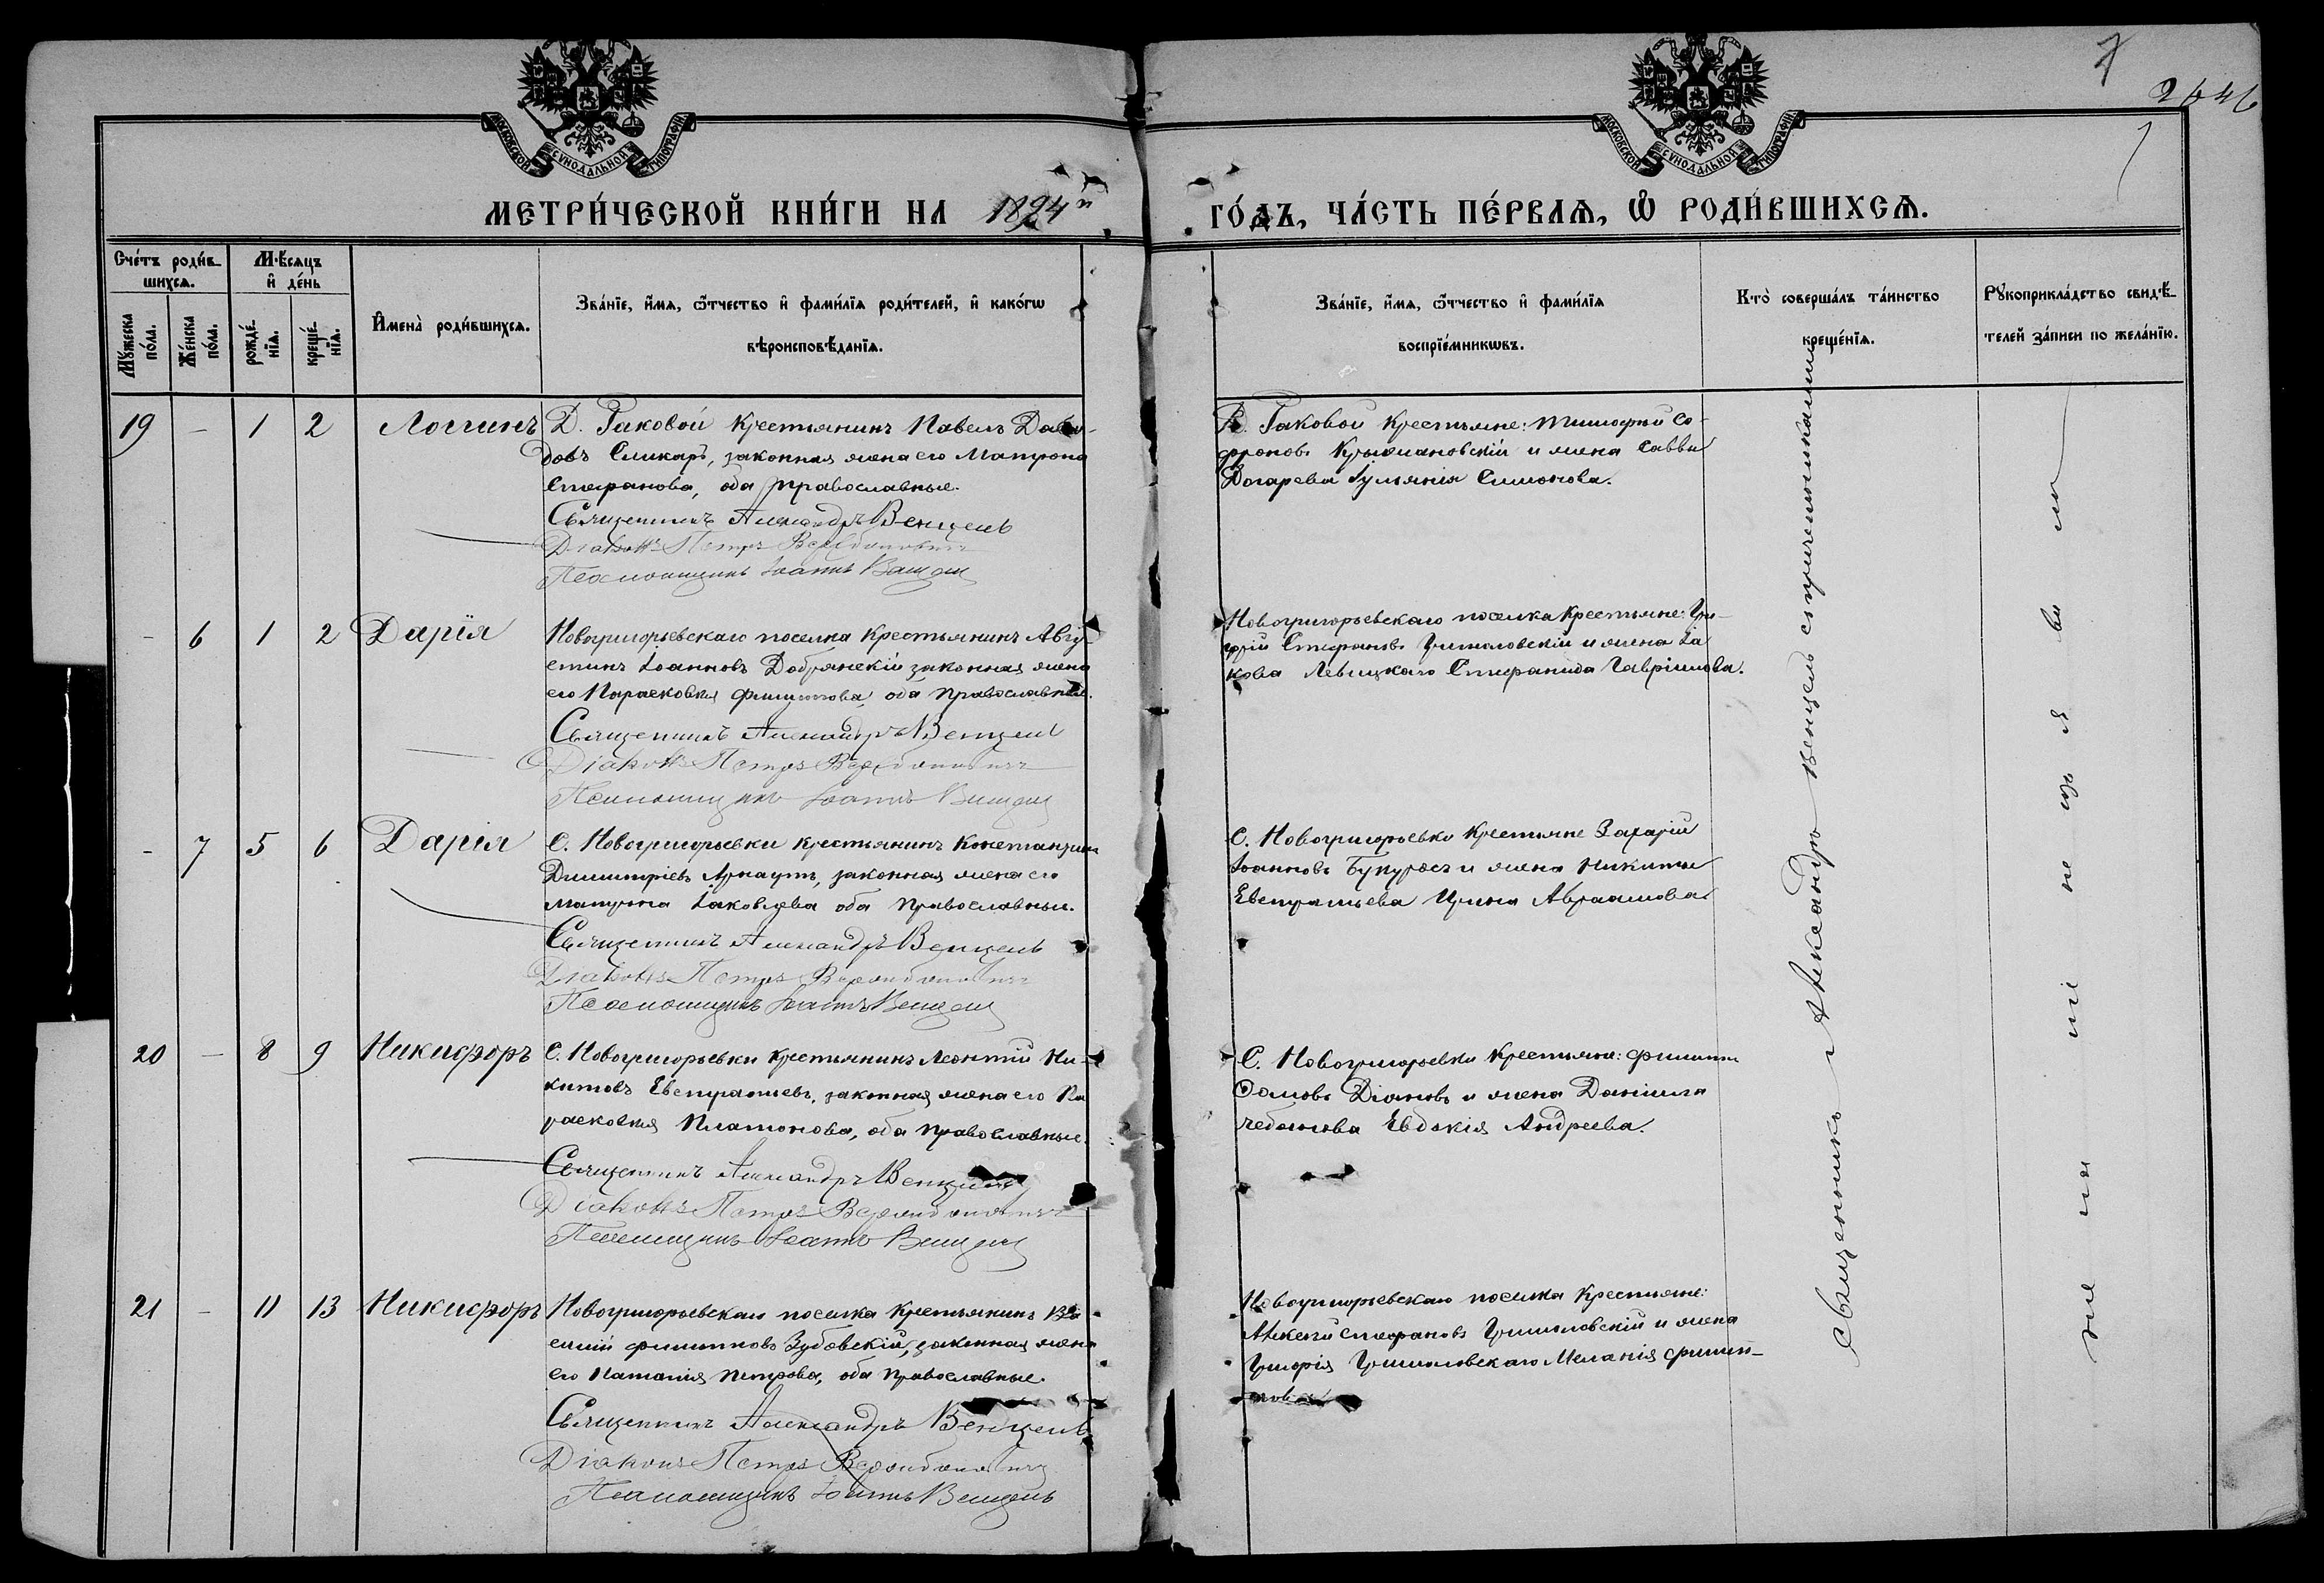 7
2646
МОСКОВСКОЙ СѴНОДАЛЬНОЙ ТИПОГРАФІИ
МОСКОВСКОЙ СѴНОДАЛЬНОЙ ТИПОГРАФІИ
МЕТРИ́ЧЕСКОЙ КНИ́ГИ НА 1894й ГО́ДЪ, ЧА́СТЬ ПЕ́РВАѦ, Ѽ РОДИ́ВШИХСѦ.
Сче́тъ роди́вшихсѧ.
Мѣ́сѧцъ и҆ де́нь
Мꙋ́жеска по́ла.
Же́нска по́ла.
рожде́нїѧ.
креще́нїѧ.
И҆мена̀ роди́вшихсѧ.
Зва́нїе, и҆́мѧ, ѻ҆́тчество и҆ фами́лїѧ роди́телей, и҆ како́гѡ
вѣроисповѣ́данїѧ.
Зва́нїе, и҆́мѧ, ѻ҆́тчество и҆ фами́лїѧ
воспрїе́мникѡвъ.
Кто̀ соверша́лъ та́инство
креще́нїѧ.
Рꙋкоприкла́дство свидѣ́телей за́писи по жела́нїю.
19 - 1 2 Логгинъ Д. Раковой крестьянинъ Павелъ Давидовъ Сликарь, законная жена его Матрона
Стефанова, оба православные.
Священникъ Александръ Венцель
Діаконъ Петръ
Псаломщикъ Іоаннъ
Д. Раковой крестьяне: Тимофей Софроновъ Крыжановскій и жена Саввы
Догарева Іуліанія Симонова.
- 6 1 2 Дарія Новогригорьевскаго поселка крестьянинъ Августинъ Іоанновъ Добрянскій законная жена
его Параскевія Филиппова, оба православные.
Священникъ Александръ Венцель
Діаконъ Петръ
Псаломщикъ Іоаннъ
Новогригорьевскаго поселка крестьяне: Григорій Стефановъ и жена Іакова Левицкаго Стефанида Гавріилова.
- 7 5 6 Дарія С. Новогригорьевки крестьянинъ Константинъ
Димитріевъ Арнаутъ, законная жена его
Матрона Іаковлева оба православные.
Священникъ Александръ Венцель
Діаконъ Петръ
Псаломщикъ Іоаннъ
С. Новогригорьевки крестьяне Захарій
Іоанновъ Букуросъ и жена Никиты
Евстратьева Ирина Авраамова
20 - 8 9 Никифоръ С. Новогригорьевки крестьянинъ Леонтій Никитовъ Евстратіевъ, законная жена его Параскевія Платонова, оба православные.
Священникъ Александръ Венцель
Діаконъ Петръ
Псаломщикъ Іоаннъ
С. Новогригорьевки крестьяне: Филиппъ
Ѳомовъ Діановъ и жена Даніила
Чеботова Евдокія Андреева.
21 - 11 13 Никифоръ Новогригорьевскаго поселка крестьянинъ Василій Филипповъ Зубовскій, законная жена
его Наталія Петрова, оба православные.
Священникъ Александръ Венцель
Діаконъ Петръ
Псаломщикъ Іоаннъ
Новогригорьевскаго поселка крестьяне:
Алексій Стефановъ и жена
Григорія Меланія Филиппова
Священникъ Александръ Венцель съ причетниками